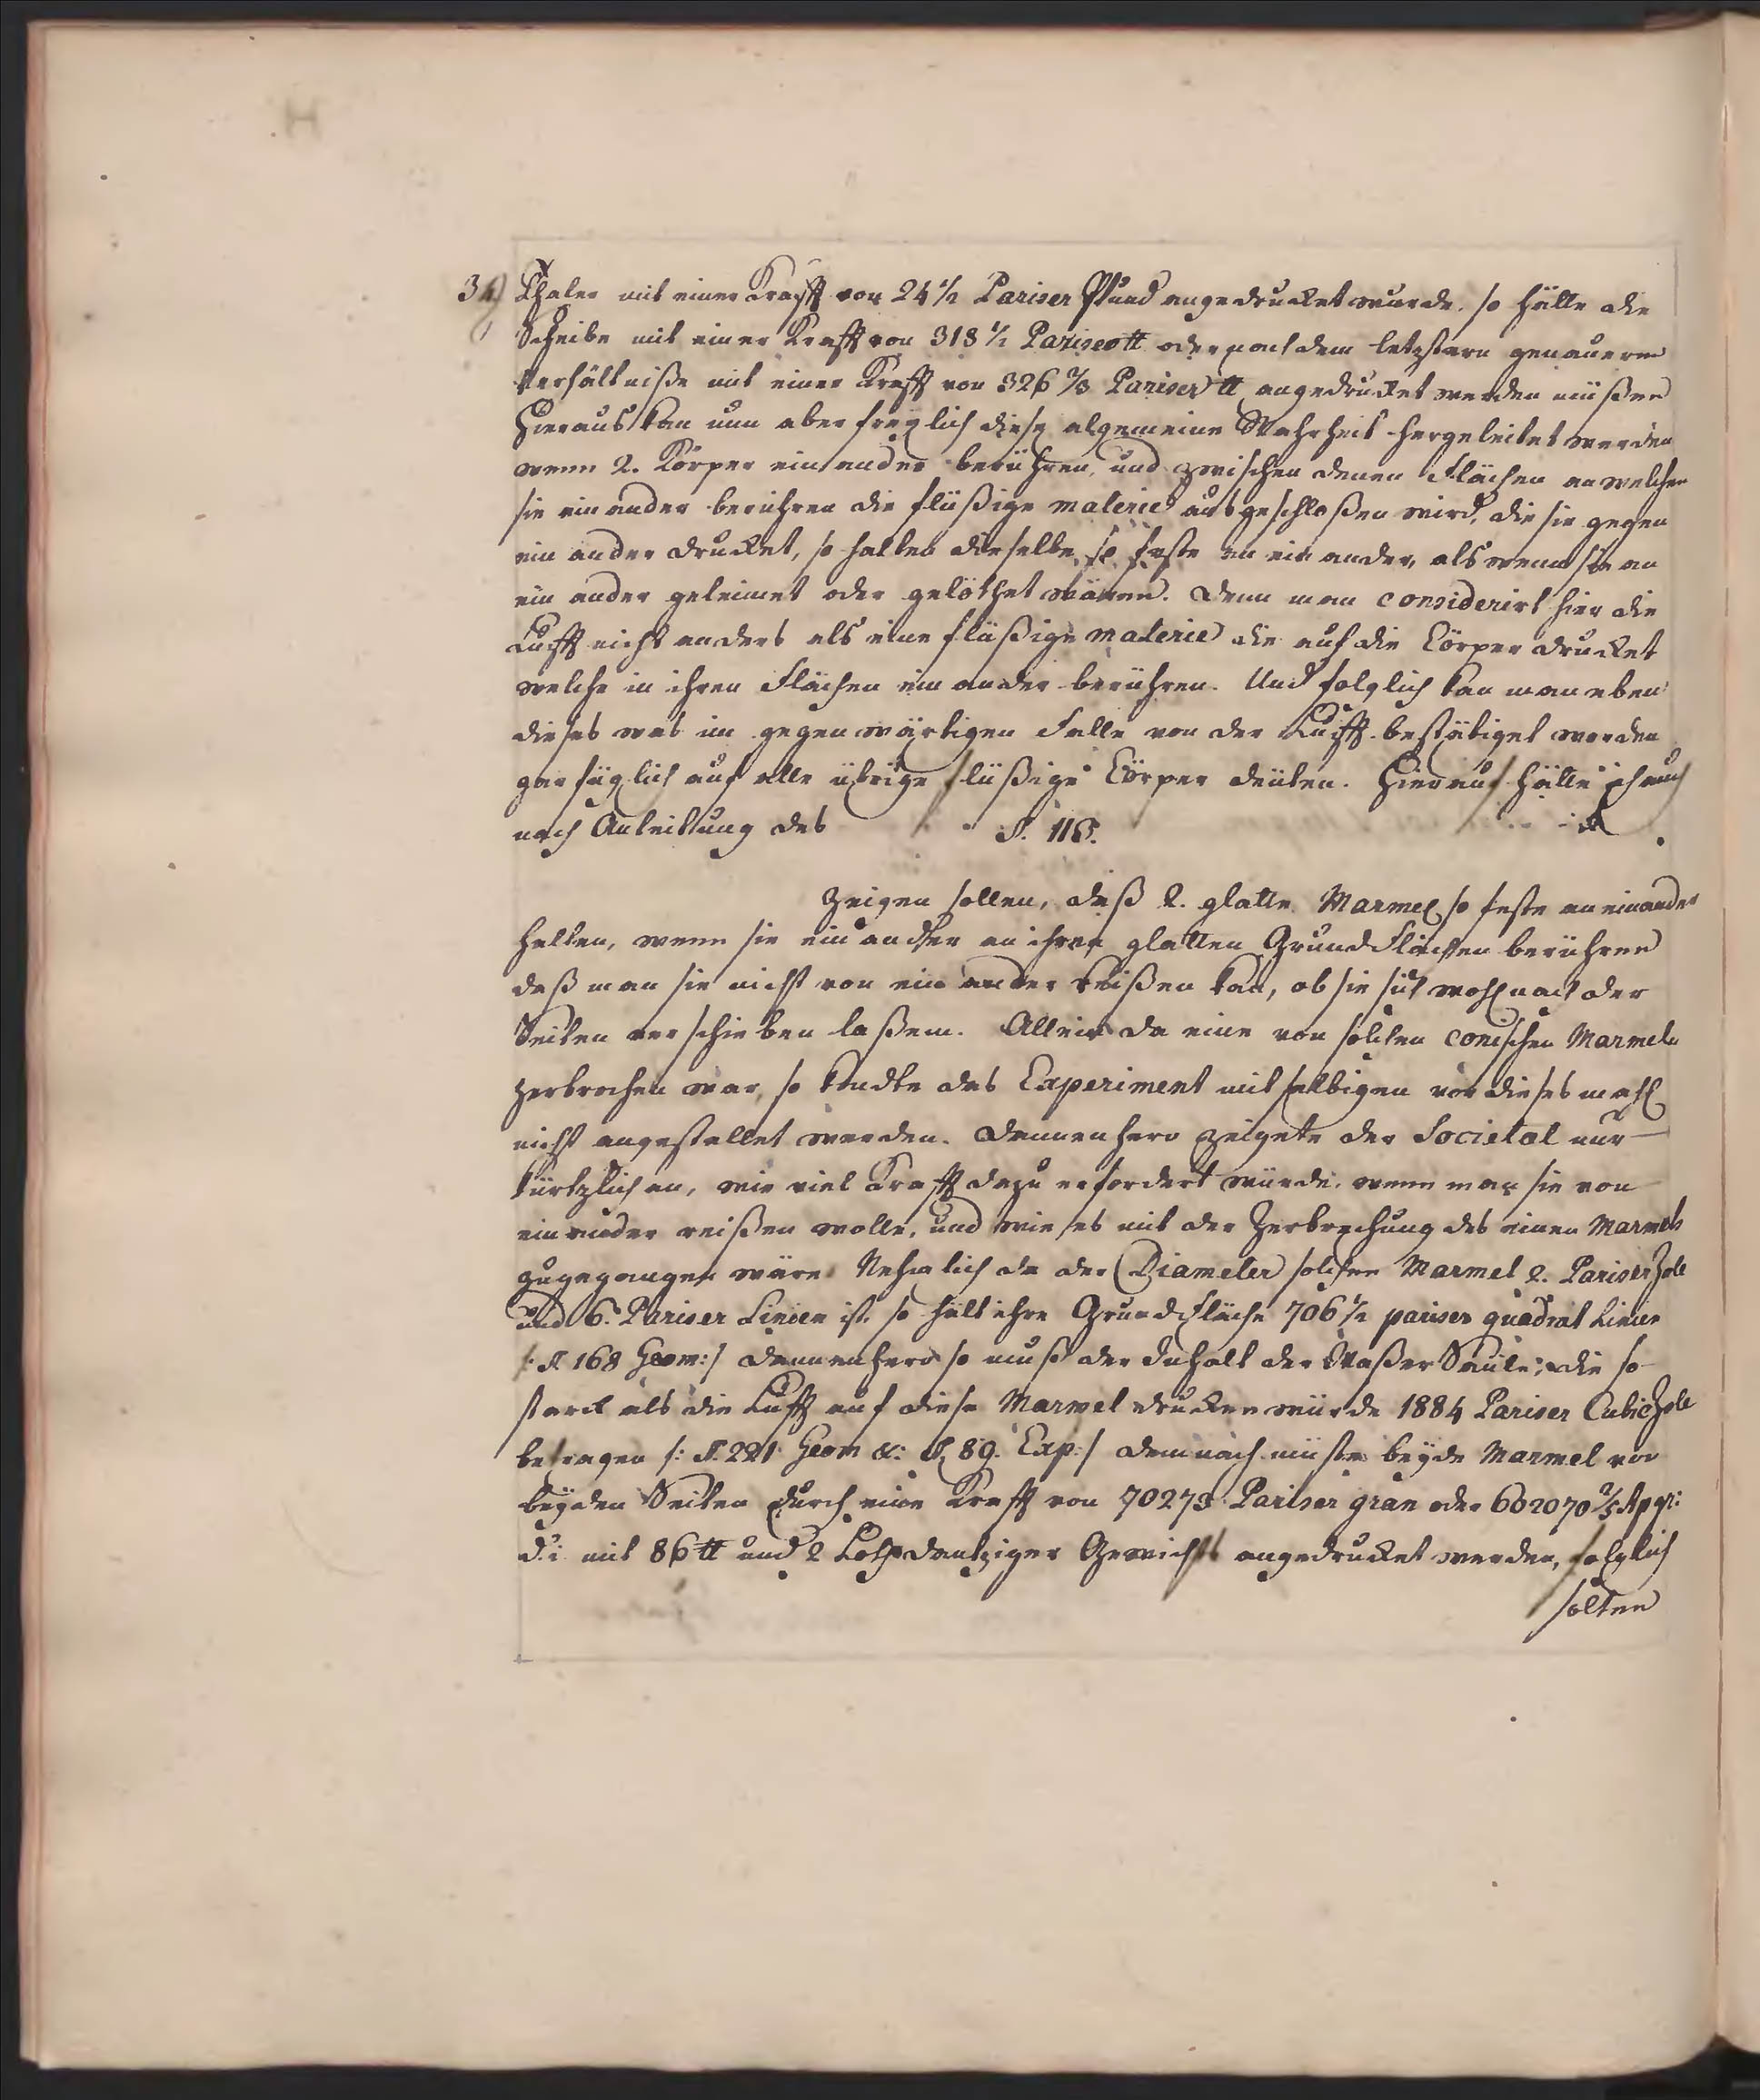 Thaler mit einer Krafft von 24 1/2 Pariser Pfund angedrucket wurde. so hätte die
Scheibe mit einer Krafft von 318 1/2 Pariser ℔ oder nach dem letztern genauerm
Verhältniße mit einer Krafft von 326 2/3 Pariser ℔ angedrucket werden müßen
Hieraus kan nun aber freylich diese algemeine Wahrheit hergeleitet werden
wenn 2. Körper einander berühren, und zwischen denen Flächen an welchen
sie ein ander berühren die flüßige materie ausgeschloßen wird, die sie gegen
ein ander drucket, so halten dieselbe so feste an ein ander, als wenn sie an
ein ander geleimet oder gelöthet wären. Denn man considerirt hier die
Lufft nicht anders als eine flüßige materie die auf die Cörper drucket
welche in ihren Flächen ein ander berühren. Und folglich kan man eben
dieses was im gegenwärtigen Falle von der Lufft bestätiget worden
gar füglich auf alle übrige flüßige Cörper deuten. Hierauf hätte ich auch
nach Anleitung des §. 116.
zeigen sollen, daß 2. glatte Marmel so feste an einander
halten, wenn sie ein ander an ihren glatten Grund Flächen berühren
daß man sie nicht von ein ander reißen kan, ob sie sich wohl nach der
Seiten verschieben laßen. Allein da eine von solchen conischen Marmeln
zerbrochen war, so kondte das Experiment mit selbigen vor dieses mahl
nicht angestellet werden. Dannenhero zeigete der Societæt nur
kürtzlich an, wie viel Krafft dazu erfordert würde, wenn man sie von
ein ander reißen wolle, und wie es mit der Zerbrechung des einen Marmels
zugegangen wäre. Nehmlich da der Diameter solcher Marmel 2. Pariser Zoll
und 6. Pariser Linien ist, so hält ihre Grund Fläche 706 1/2 pariser quadrat Linien
/: §. 168 Geom: / dannenhero so muß der Inhalt der Waßer Säule, die so
starck als die Lufft auf diese Marmel drucken würde 1884 Pariser Cubic Zoll
betragen /: §. 221 Geom &: §. 89. Exp: / demnach müste beyde Marmel von
beyden Seiten durch eine Krafft von 70273 Pariser gran oder 602070 2/5 Ap gr:
d: i mit 86 ℔ und 2 Loth dantziger Gewichts angedrucket werden, folglich
solten